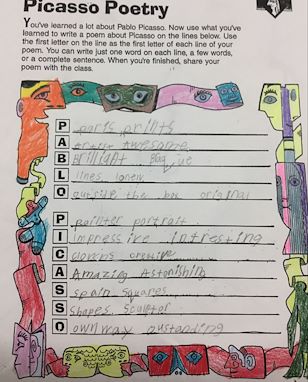 Picasso Poetry
You've learned a lot about Pablo Picasso. Now use what you've
learned to write a poem about Picasso on the lines below. Use
the first letter on the line as the first letter of each line of your
poem. You can write just one word on each line, a few words,
or a complete sentence. When you're finished, share your
poem with the class.
P paris prints
A artist Awesome
B Brilliant Blue
L lines lonely
O outside the box original
P painter portrait
I impressive intresting
C creative
A Amazing Astonishing
S spain squares
S shapes sculptor
O own way oustanding